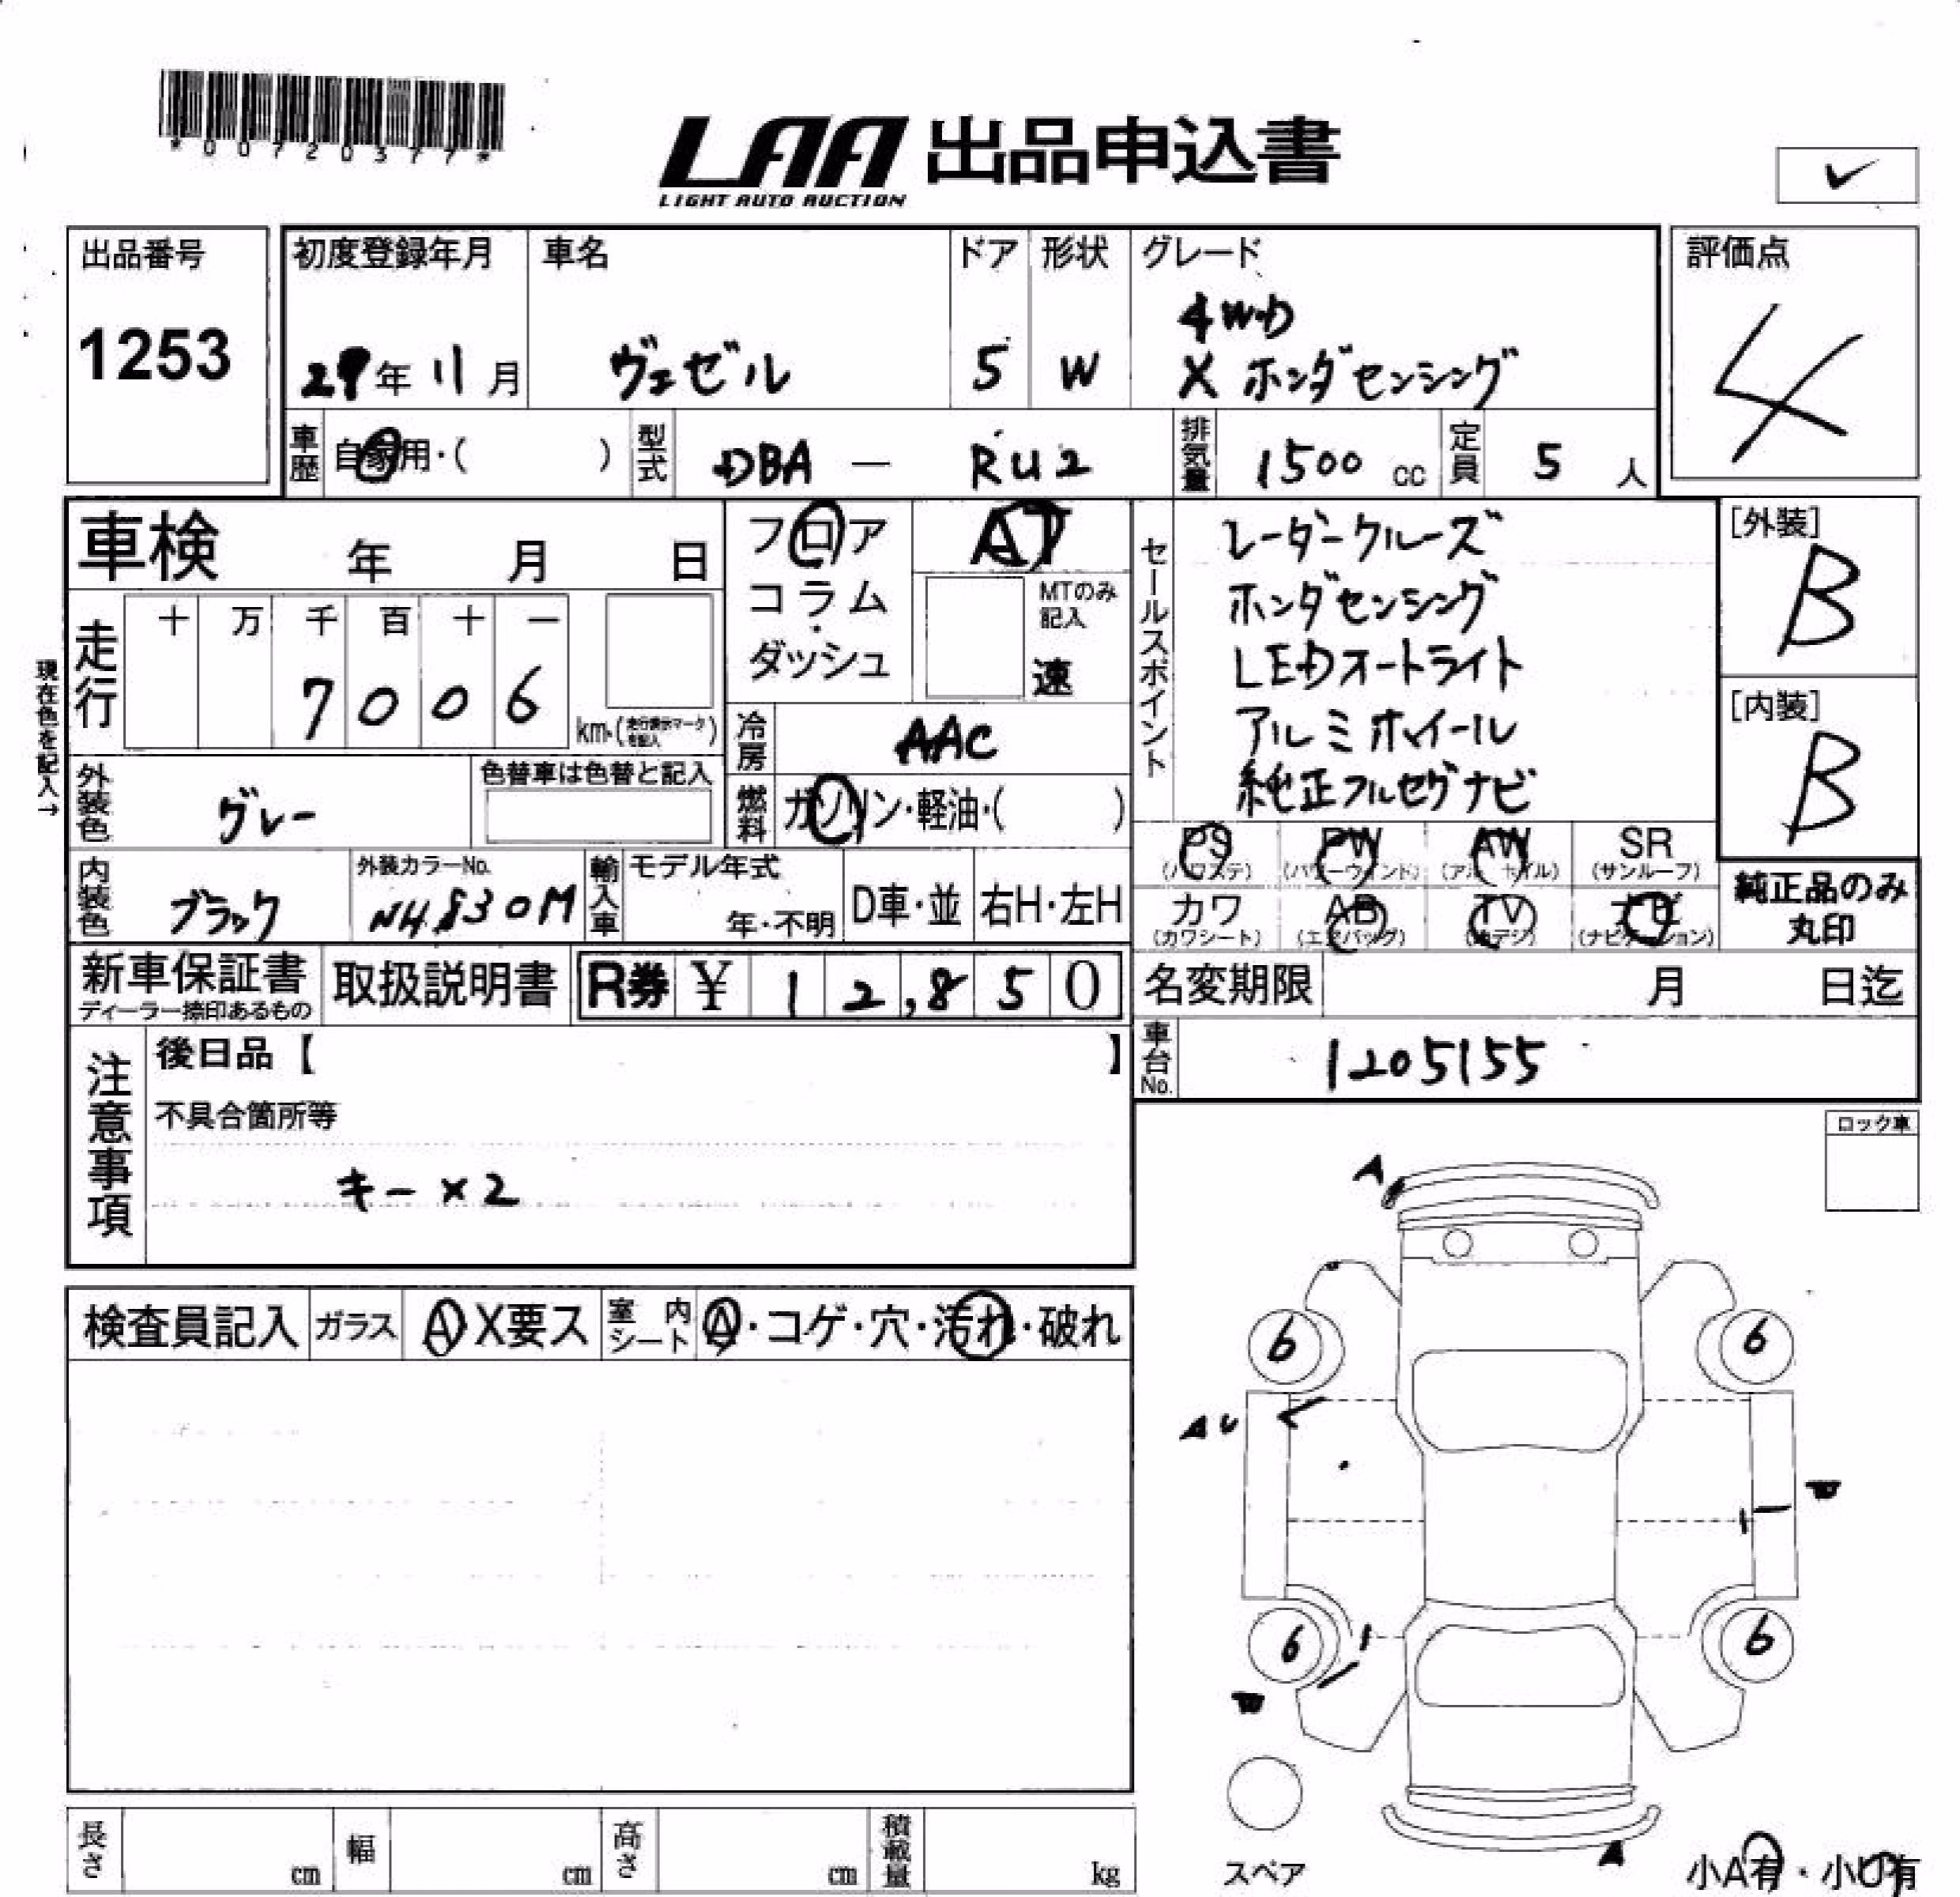 *00720377*
LAA 出品申込書
LIGHT AUTO AUCTION
✓
出品番号
1253
初度登録年月
29年 11月
車名
ヴェゼル
ドア
5
形状
W
グレード
4WD
X ホンダセンシング
評価点
4
車歴 自家用・( )
型式 DBA — RU2
排気量 1500 cc
定員 5 人
車検 年 月 日
フロア
コラム
・
ダッシュ
AT
MTのみ
記入
速
セールスポイント
レーダークルーズ
ホンダセンシング
LEDオートライト
アルミホイール
純正フルセグナビ
[外装]
B
[内装]
B
現在色を記入→
走行
十 万 千 百 十 一
7 0 0 6
km・(走行表示マークを記入)
冷房 AAC
外装色 グレー
色替車は色替と記入
燃料 ガソリン・軽油・( )
PS
(パワステ)
PW
(パワーウィンド)
AW
(アルミホイル)
SR
(サンルーフ)
内装色 ブラック
外装カラーNo.
NH830M
輸入車
モデル年式
年・不明
D車・並
右H・左H
カワ
(カワシート)
AB
(エアバッグ)
TV
(地デジ)
ナビ
(ナビゲーション)
純正品のみ
丸印
新車保証書
ディーラー捺印あるもの
取扱説明書
R券 ¥ 12,850
名変期限 月 日迄
注意事項
後日品【 】
車台No. 1205155
不具合箇所等
キー×2
ロック車
A
検査員記入
ガラス A X要ス
室内シート A・コゲ・穴・汚れ・破れ
6 6
AU
W
6 6
W
スペア
A
小A有・小U有
長さ cm
幅 cm
高さ cm
積載量 kg